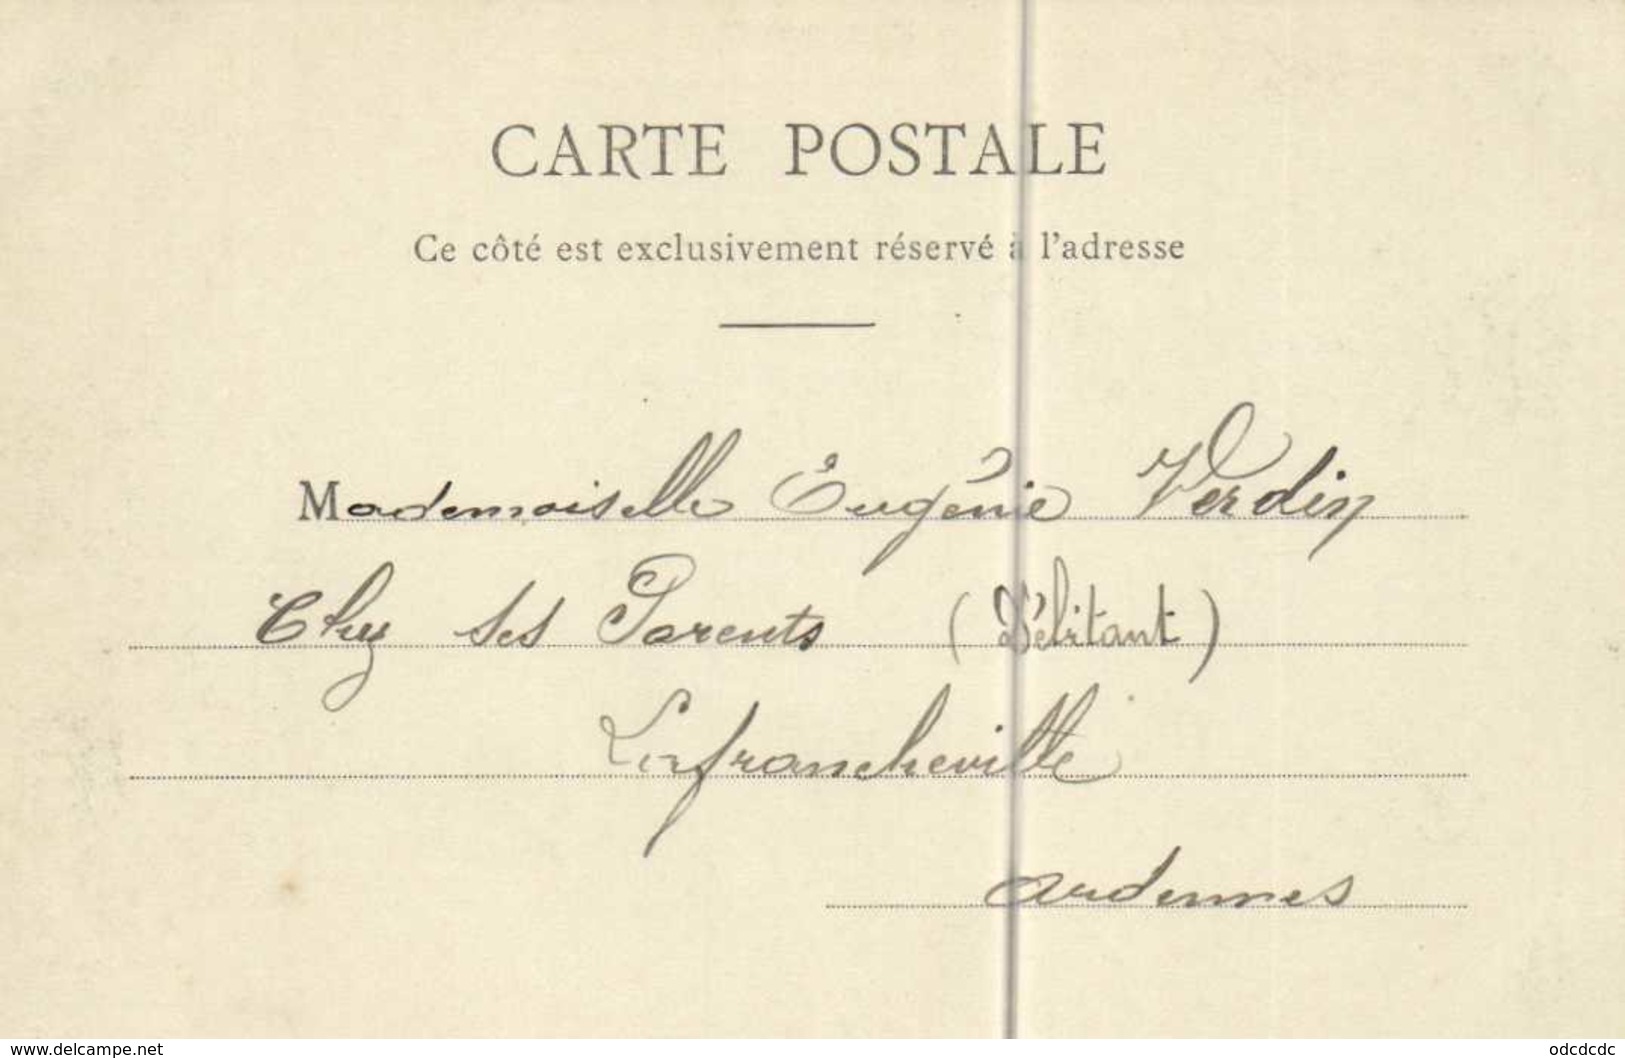 CARTE POSTALE
Ce côté est exclusivement réservé à l'adresse
Mademoiselle Eugénie Verdin
Chez ses Parents (Débitant)
Lafrancheville
Ardennes
www.delcampe.net
odcdcdc